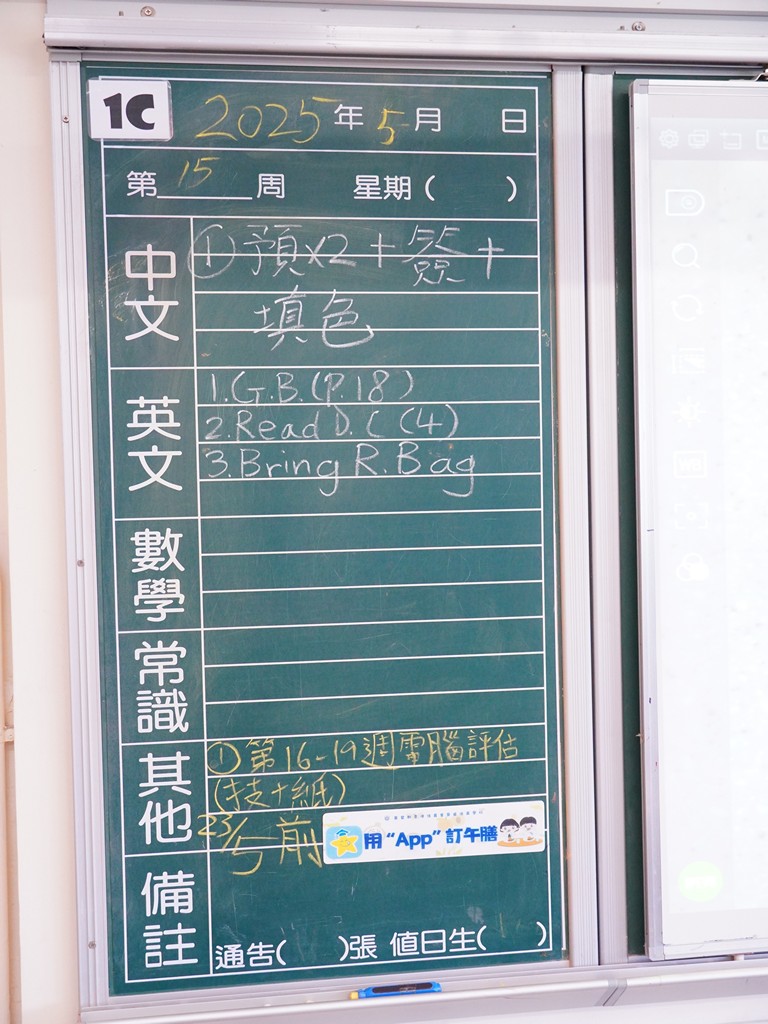 1C
2025年5月 日
第15周 星期( )
中文
①預x2+簽+
填色
英文
1.G.B.(P.18)
2.Read D.C (4)
3.Bring R.Bag
數學
常識
其他
①第16-19週電腦評估
(技+紙)
23/5前
用“App”訂午膳
備註
通告( )張 值日生( )